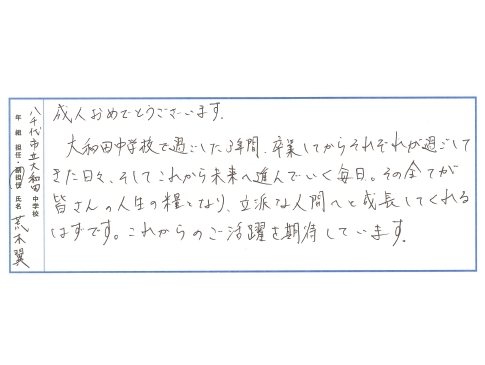 八千代市立大和田中学校
年 組 担任・副担任 氏名 荒木翼
成人おめでとうございます.
大和田中学校で過ごした3年間、卒業してからそれぞれが過ごして
きた日々、そしてこれから未来へ進んでいく毎日。その全てが
皆さんの人生の糧となり、立派な人間へと成長してくれる
はずです。これからのご活躍を期待しています.